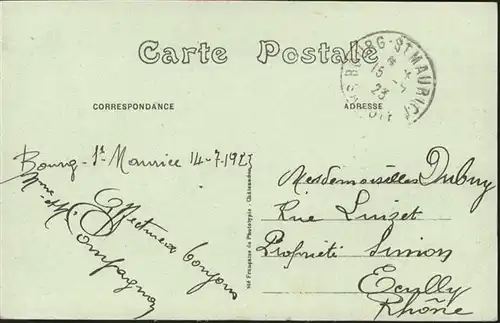 Carte Postale
CORRESPONDANCE
ADRESSE
BOURG-ST MAURICE
15 -7
23
Bourg-St Maurice 14-7-1923
Affectueux bonjours
Mme et M. Compagnon
Mesdemoiselles Dubuy
Rue Luizet
Propriété Simon
Ecully
Rhône
Française de Phototypie - Châteaudun